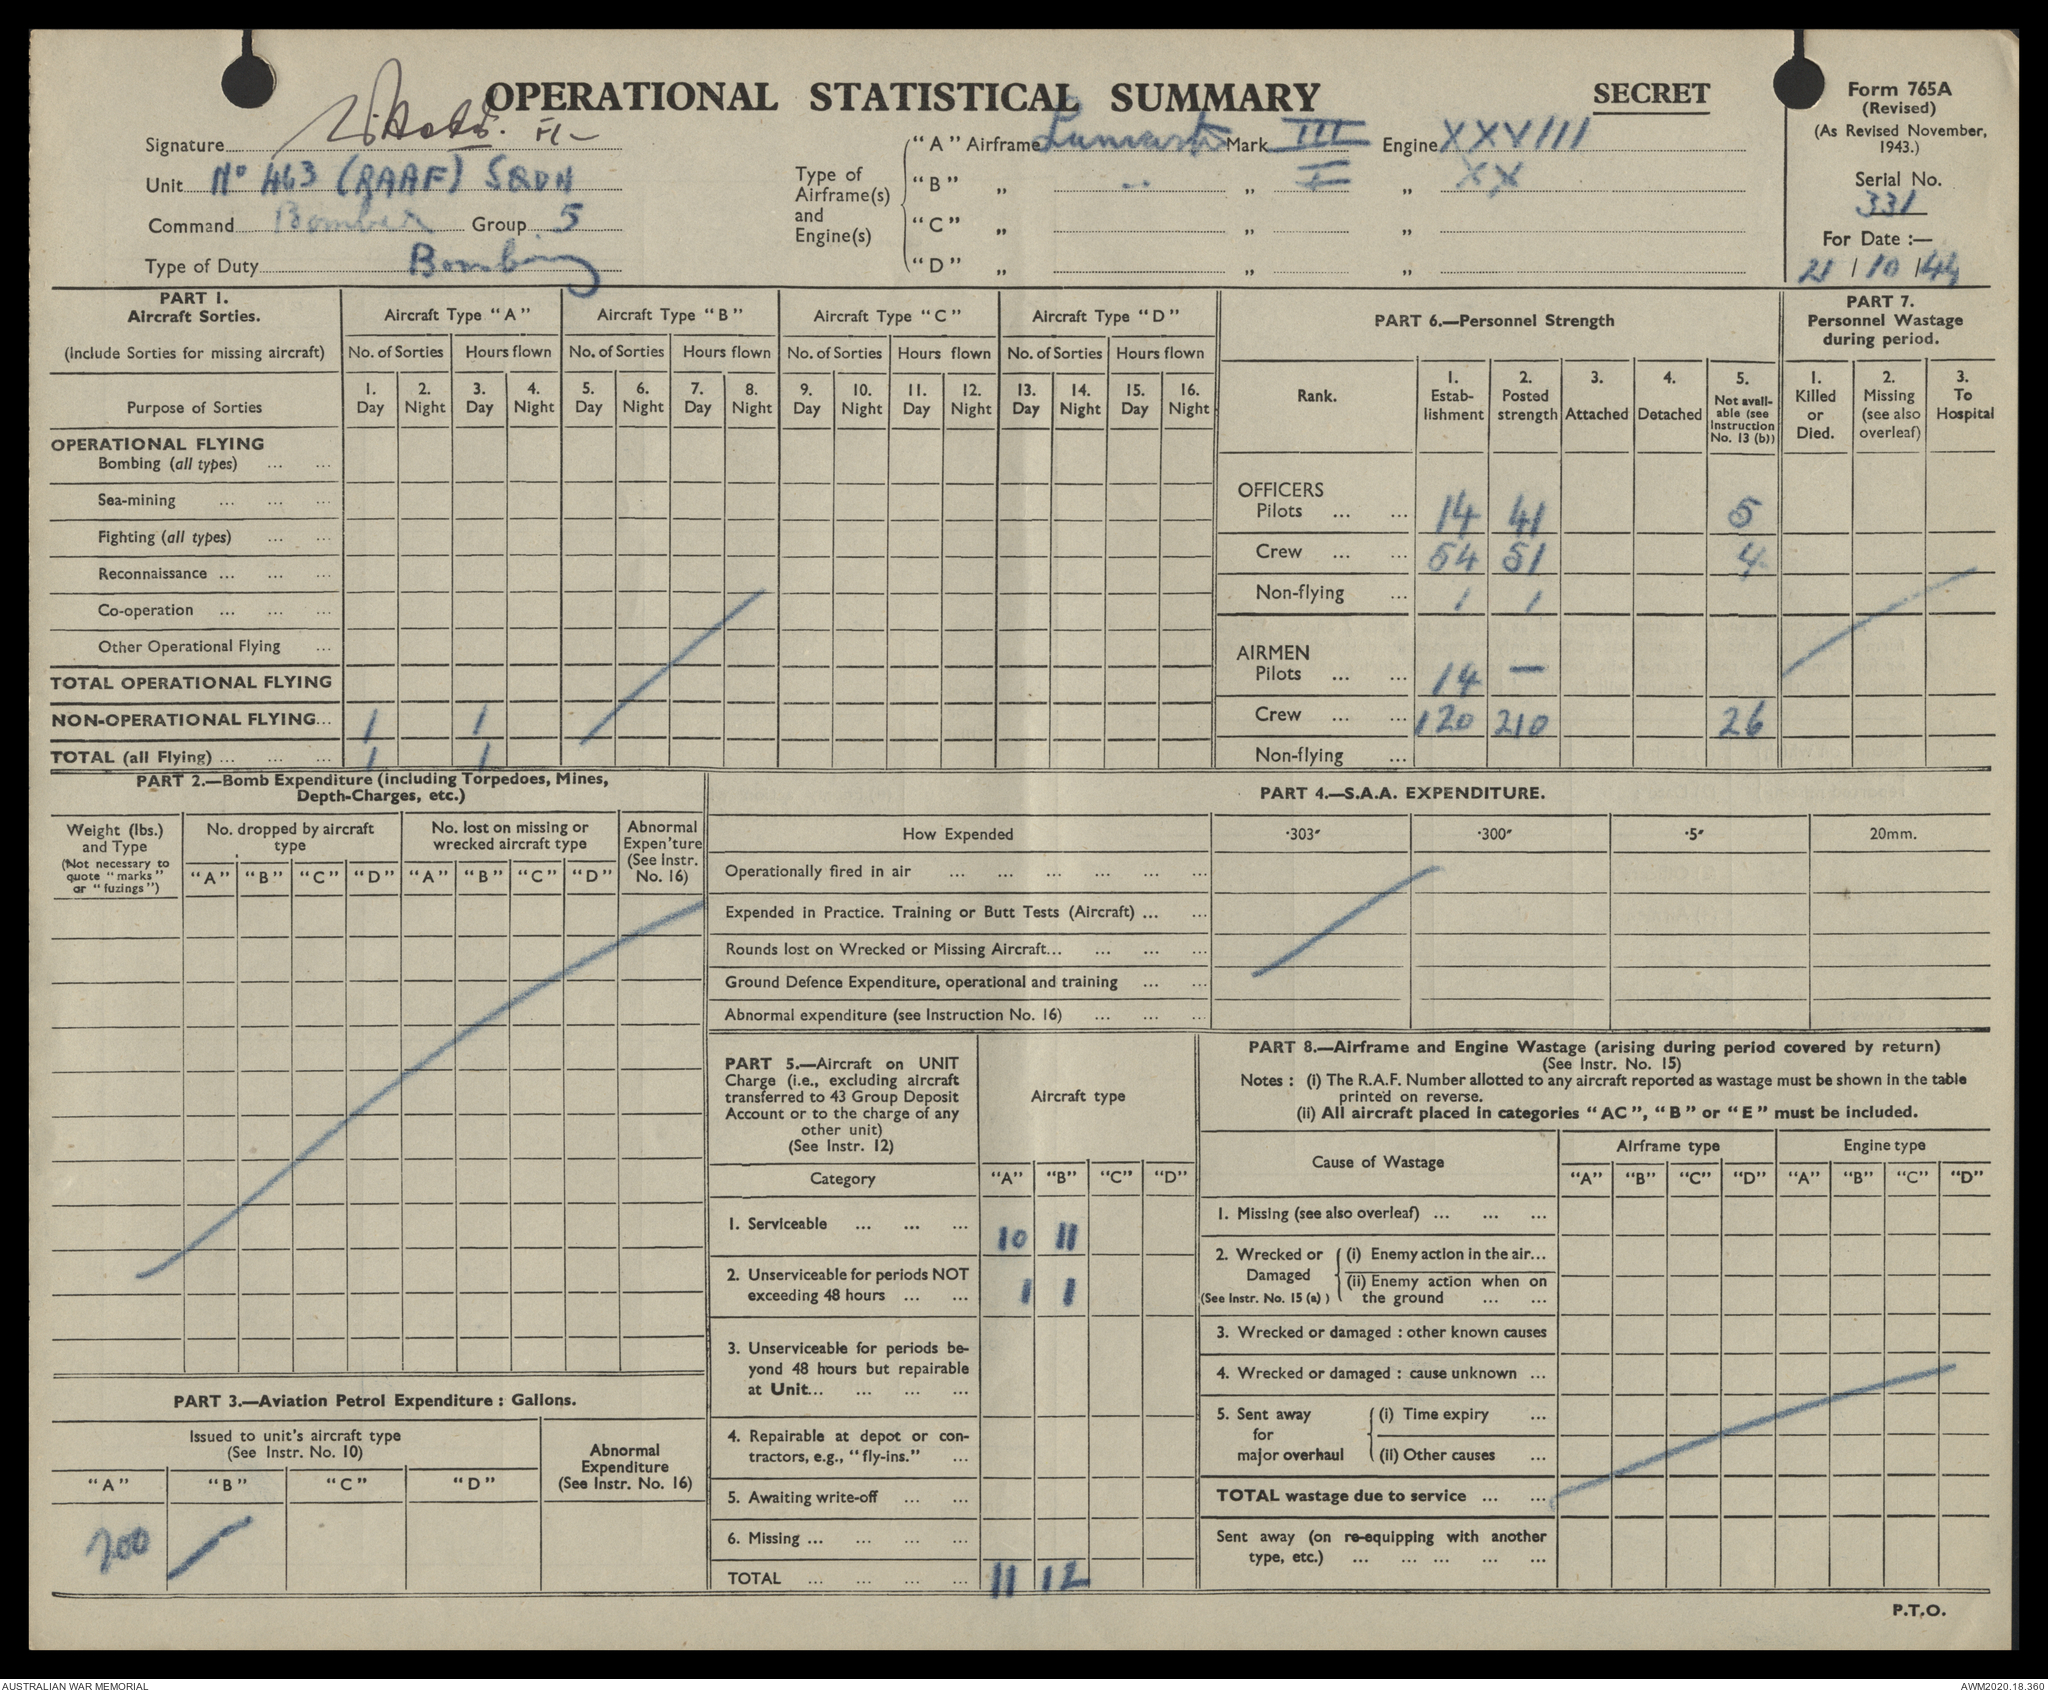 OPERATIONAL STATISTICAL SUMMARY
SECRET
Form 765A
(Revised)
(As Revised November, 1943.)
Serial No.
331
For Date :—
21 / 10 / 44
Signature
Unit No 463 (RAAF) SQDN
Command Bomber Group 5
Type of Duty Bombing
Type of Airframe(s) and Engine(s)
"A" Airframe Lancaster Mark III Engine XXVIII
"B" „ " „ I „ XX
"C" „ „ „
"D" „ „ „
PART 1.
Aircraft Sorties.
(Include Sorties for missing aircraft)
Aircraft Type "A" Aircraft Type "B" Aircraft Type "C" Aircraft Type "D"
No. of Sorties Hours flown No. of Sorties Hours flown No. of Sorties Hours flown No. of Sorties Hours flown
Purpose of Sorties
1. Day 2. Night 3. Day 4. Night 5. Day 6. Night 7. Day 8. Night 9. Day 10. Night 11. Day 12. Night 13. Day 14. Night 15. Day 16. Night
OPERATIONAL FLYING
Bombing (all types) ... ...
Sea-mining ... ... ...
Fighting (all types) ... ...
Reconnaissance ... ... ...
Co-operation ... ... ...
Other Operational Flying ...
TOTAL OPERATIONAL FLYING
NON-OPERATIONAL FLYING... 1 1
TOTAL (all Flying) ... ... ... 1 1
PART 6.—Personnel Strength
Rank.
1. Estab-lishment
2. Posted strength
3. Attached
4. Detached
5. Not avail-able (see Instruction No. 13 (b))
OFFICERS
Pilots ... ... 14 41 5
Crew ... ... 54 51 4
Non-flying ... 1 1
AIRMEN
Pilots ... ... 14 —
Crew ... ... 120 210 26
Non-flying ...
PART 7.
Personnel Wastage during period.
1. Killed or Died.
2. Missing (see also overleaf)
3. To Hospital
PART 2.—Bomb Expenditure (including Torpedoes, Mines,
Depth-Charges, etc.)
Weight (lbs.) and Type
(Not necessary to quote "marks" or "fuzings")
No. dropped by aircraft type
No. lost on missing or wrecked aircraft type
Abnormal Expen'ture (See Instr. No. 16)
"A" "B" "C" "D" "A" "B" "C" "D"
PART 4.—S.A.A. EXPENDITURE.
How Expended ·303" ·300" ·5" 20mm.
Operationally fired in air ... ... ... ... ... ...
Expended in Practice. Training or Butt Tests (Aircraft) ... ...
Rounds lost on Wrecked or Missing Aircraft... ... ... ...
Ground Defence Expenditure, operational and training ... ...
Abnormal expenditure (see Instruction No. 16) ... ... ...
PART 3.—Aviation Petrol Expenditure : Gallons.
Issued to unit's aircraft type
(See Instr. No. 10)
Abnormal Expenditure (See Instr. No. 16)
"A" "B" "C" "D"
200
PART 5.—Aircraft on UNIT
Charge (i.e., excluding aircraft
transferred to 43 Group Deposit
Account or to the charge of any
other unit)
(See Instr. 12)
Aircraft type
Category "A" "B" "C" "D"
1. Serviceable ... ... ... 10 11
2. Unserviceable for periods NOT
exceeding 48 hours ... ... 1 1
3. Unserviceable for periods be-
yond 48 hours but repairable
at Unit... ... ... ...
4. Repairable at depot or con-
tractors, e.g., "fly-ins." ...
5. Awaiting write-off ... ...
6. Missing ... ... ... ...
TOTAL ... ... ... ... 11 12
PART 8.—Airframe and Engine Wastage (arising during period covered by return)
(See Instr. No. 15)
Notes : (i) The R.A.F. Number allotted to any aircraft reported as wastage must be shown in the table
printed on reverse.
(ii) All aircraft placed in categories "AC", "B" or "E" must be included.
Cause of Wastage Airframe type Engine type
"A" "B" "C" "D" "A" "B" "C" "D"
1. Missing (see also overleaf) ... ... ...
2. Wrecked or Damaged (See Instr. No. 15 (a) )
(i) Enemy action in the air...
(ii) Enemy action when on
the ground ... ...
3. Wrecked or damaged : other known causes
4. Wrecked or damaged : cause unknown ...
5. Sent away for major overhaul
(i) Time expiry ...
(ii) Other causes ...
TOTAL wastage due to service ... ...
Sent away (on re-equipping with another
type, etc.) ... ... ... ... ...
P.T.O.
AUSTRALIAN WAR MEMORIAL
AWM2020.18.360